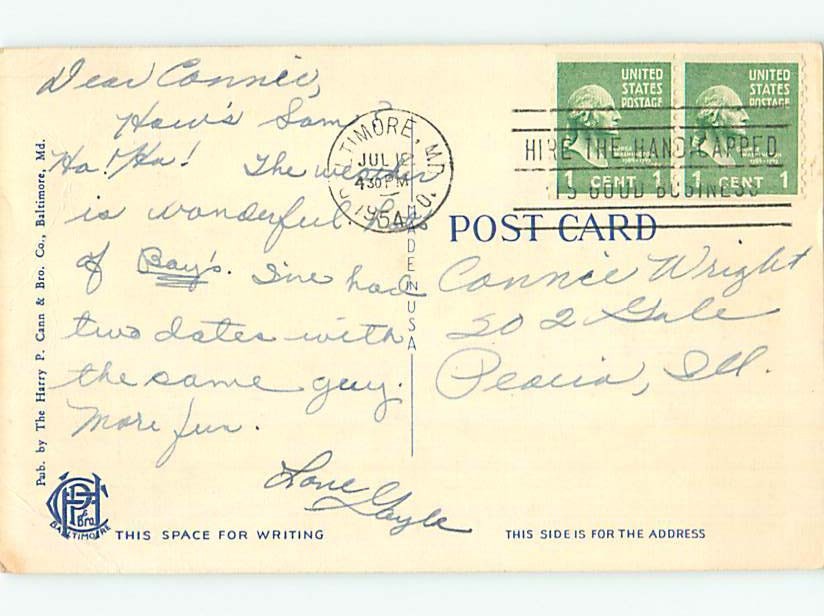 Dear Connie,
How's Sam?
Ha! Ha! The weather
is wonderful. Lots
of Boy's. I've had
two dates with
the same guy.
More fun.
Love
Gayle
Pub. by The Harry P. Cann & Bro. Co., Baltimore, Md.
HPC & Bro.
BALTIMORE
THIS SPACE FOR WRITING
BALTIMORE, MD.
JUL 12
430 PM
1954
MADE IN USA
UNITED STATES POSTAGE
1 CENT 1
UNITED STATES POSTAGE
1 CENT 1
HIRE THE HANDICAPPED
ITS GOOD BUSINESS
POST CARD
Connie Wright
202 Gale
Peoria, Ill.
THIS SIDE IS FOR THE ADDRESS